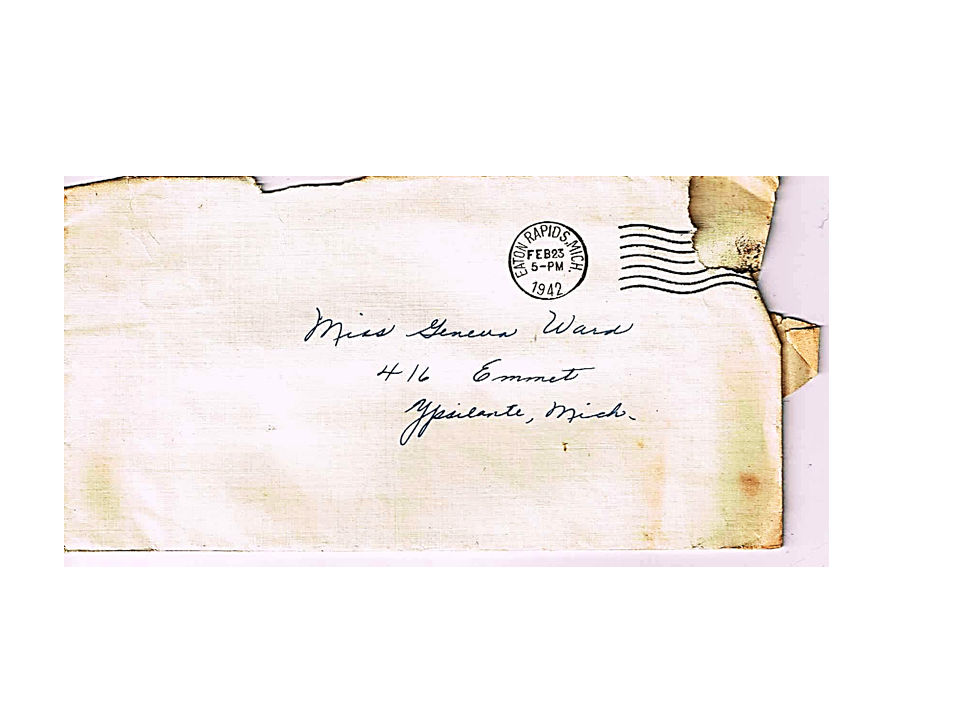 EATON RAPIDS, MICH.
FEB 23
5-PM
1942
Miss Geneva Ward
416 Emmet
Ypsilante, Mich.